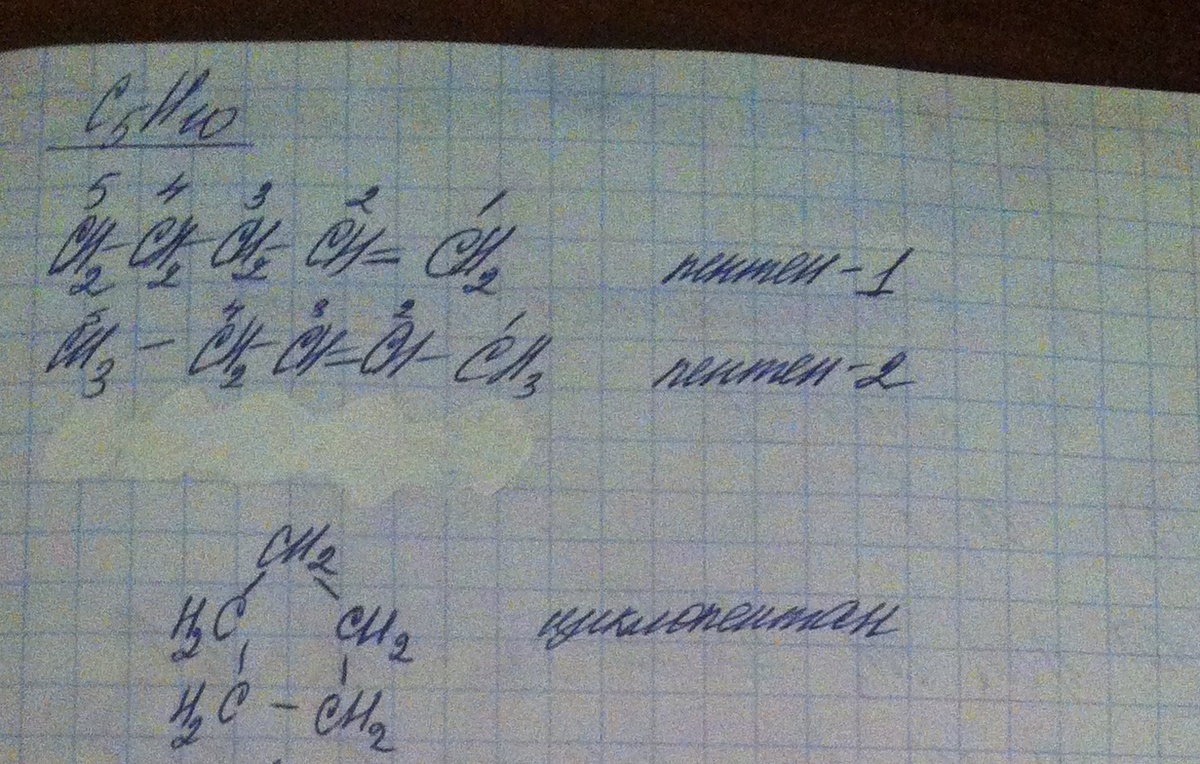 C₅H₁₀
5 4 3 2 1
CH₂-CH₂-CH₂-CH=CH₂ пентен-1
5 4 3 2 1
CH₃-CH₂-CH=CH-CH₃ пентен-2
CH₂
H₂C CH₂ циклопентан
H₂C-CH₂